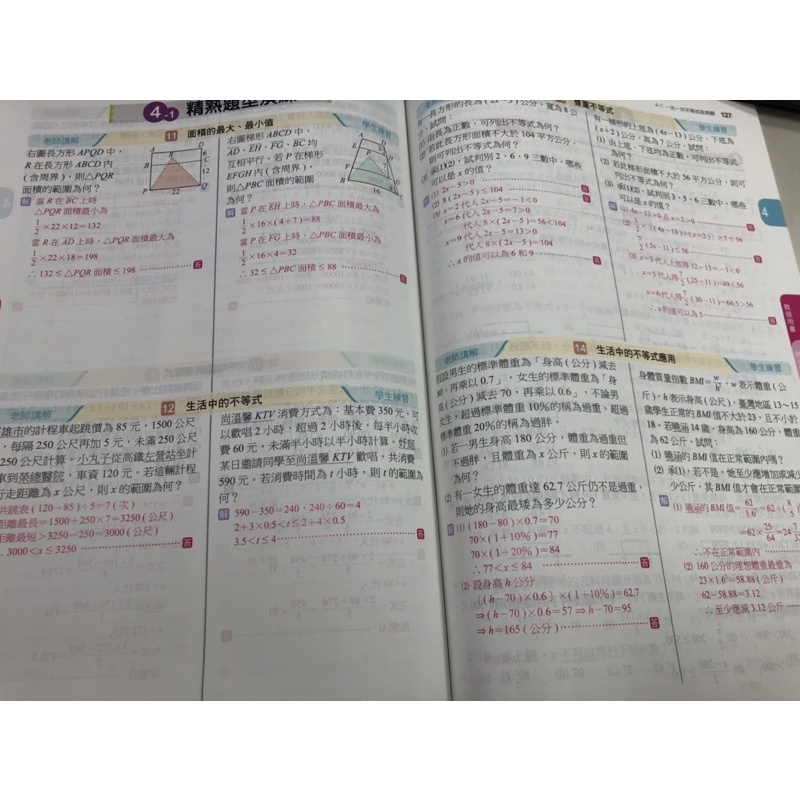 4-1 精熟題型演
老師講解 11 面積的最大、最小值 學生練習
右圖長方形 APQD 中,
R 在長方形 ABCD 內
(含周界),則△PQR
面積的範圍為何?
A D
R
6
B C
12
P 22 Q
解 當 R 在 BC 上時
△PQR 面積最小為
1/2×22×12=132
當 R 在 AD 上時,△PQR 面積最大為
1/2×22×18=198
∴132≤△PQR 面積≤198 答
右圖梯形 ABCD 中,
AD、EH、FG、BC 均
互相平行,若 P 在梯形
EFGH 內(含周界),
則△PBC 面積的範圍
為何?
解 當 P 在 EH 上時,△PBC 面積最大為
1/2×16×(4+7)=88
當 P 在 FG 上時,△PBC 面積最小為
1/2×16×4=32
∴32≤△PBC 面積≤88 答
老師講解 12 生活中的不等式 學生練習
雄市的計程車起跳價為 85 元,1500 公尺
,每隔 250 公尺再加 5 元,未滿 250 公尺
250 公尺計算。小丸子從高鐵左營站坐計
車到榮總醫院,車資 120 元。若這輛計程
行走距離為 x 公尺,則 x 的範圍為何?
共跳表(120-85)÷5=7(次)
距離最長=1500+250×7=3250(公尺)
距離最短>3250-250=3000(公尺)
3000<x≤3250 答
尚溫馨 KTV 消費方式為:基本費 350 元,可
以歡唱 2 小時,超過 2 小時後,每半小時收
費 60 元,未滿半小時以半小時計算。舒庭
某日邀請同學至尚溫馨 KTV 歡唱,共消費
590 元。若消費時間為 t 小時,則 t 的範圍為
何?
解 590-350=240,240÷60=4
2+3×0.5<t≤2+4×0.5
3.5<t≤4 答
4-1 一元一次不等式及其解 127
雙重不等式
長方形的長為(2x-5)公分,寬為 8 公
,試問:
由長為正數,可列出不等式為何?
若此長方形面積不大於 104 平方公分,
則可列出不等式為何?
承(1)(2),試判別 2、6、9 三數中,哪些
可以是 x 的值?
(1) 2x-5>0
(2) 8(2x-5)≤104
(3) x=2 代入 2x-5=-1<0
x=6 代入 2x-5=7>0
代入 8×(2x-5)=56<104
x=9 代入 2x-5=13>0
代入 8×(2x-5)=104
∴x 的值可以為 6 和 9 答
學生練習
有一梯形的上底為(4x-13)公分,下底為
(x+2)公分,高為 7 公分,試問:
(1) 由上底、下底均為正數,可列出不等式
為何?
(2) 若此梯形面積不大於 56 平方公分,則可
列出不等式為何?
(3) 承(1)(2),試判別 3、5、6 三數中,哪些
可以是 x 的值?
解 (1) 4x-13>0 且 x+2>0
(2) 1/2×[(4x-13)+(x+2)]×7≤56
7/2(5x-11)≤56
(3) x=3 代入上底得 12-13=-1<0
x=5 代入得 7/2(25-11)=49<56
x=6 代入得 7/2(30-11)=66.5>56
∴x 的值可以為 5 答
4
教師用書
老師講解 14 生活中的不等式應用 學生練習
假設男生的標準體重為「身高(公分)減去
80,再乘以 0.7」,女生的標準體重為「身
高(公分)減去 70,再乘以 0.6」,不論男
女生,超過標準體重 10%的稱為過重,超過
標準體重 20%的稱為過胖。
(1) 若一男生身高 180 公分,體重為過重但
不過胖,且體重為 x 公斤,則 x 的範圍
為何?
(2) 有一女生的體重達 62.7 公斤仍不是過重,
則她的身高最矮為多少公分?
解 (1) (180-80)×0.7=70
70×(1+10%)=77
70×(1+20%)=84
∴77<x≤84 答
(2) 設身高 h 公分
[(h-70)×0.6]×(1+10%)=62.7
⇒(h-70)×0.6=57⇒h-70=95
⇒h=165(公分) 答
身體質量指數 BMI=w/h²,w 表示體重(公
斤),h 表示身高(公尺),臺灣地區 13~15
歲學生正常的 BMI 值不大於 23,且不小於
18。若曉涵 14 歲,身高為 160 公分,體重
為 62 公斤,試問:
(1) 曉涵的 BMI 值在正常範圍內嗎?
(2) 承(1),若不是,她至少應增加或減少
少公斤,其 BMI 值才會在正常範圍
解 (1) 曉涵的 BMI 值=62/1.6²=62÷(8/5)
=62×25/64=24 7/32
∴不在正常範圍內
(2) 160 公分的理想體重最重為
23×1.6²=58.88(公斤)
62-58.88=3.12
∴至少應減 3.12 公斤